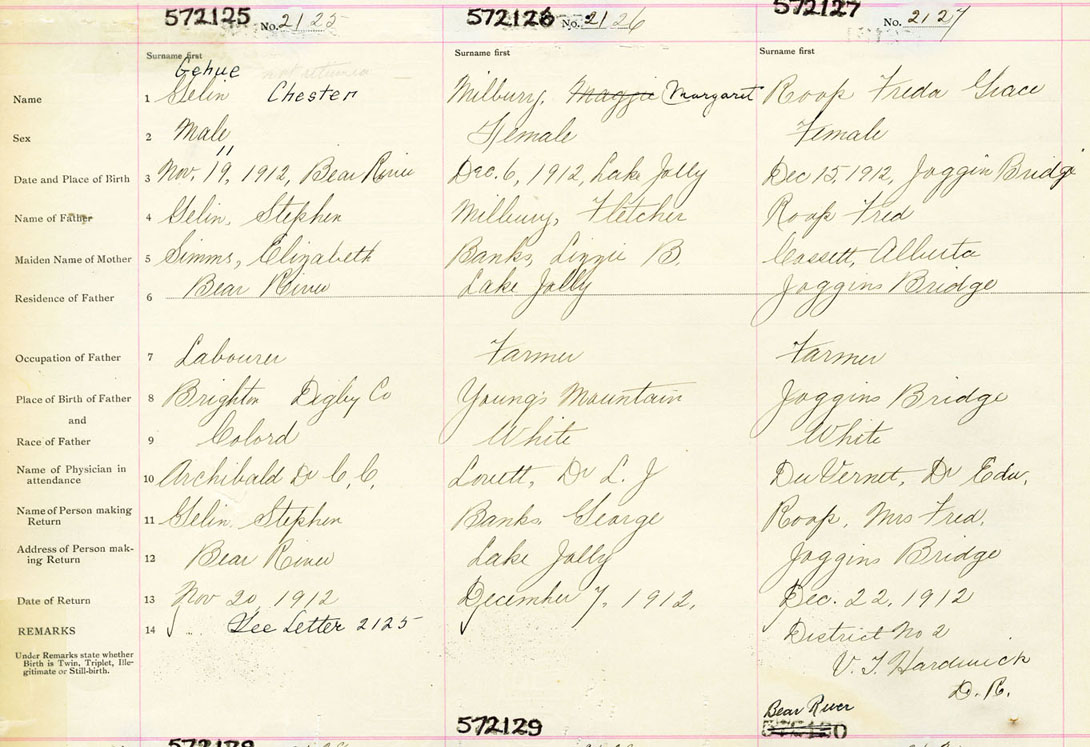 572125 No. 2125 572126 No. 2126 572127 No. 2127
Surname first Surname first Surname first
Gehue not returned
Name 1 Gelin Chester Milbury, Maggie Margaret Roop Freda Grace
Sex 2 Male Female Female
11
Date and Place of Birth 3 Nov. 19, 1912, Bear River Dec. 6, 1912, Lake Jolly Dec 15, 1912, Joggin Bridge
Name of Father 4 Gelin, Stephen Milbury, Fletcher Roop Fred
Maiden Name of Mother 5 Simms, Elizabeth Banks, Lizzie B. Cossett, Alberta
Residence of Father 6 Bear River Lake Jolly Joggins Bridge
Occupation of Father 7 Labourer Farmer Farmer
Place of Birth of Father 8 Brighton Digby Co Young's Mountain Joggins Bridge
and
Race of Father 9 Colord White White
Name of Physician in
attendance 10 Archibald Dr C. C. Lovett, Dr L. J Du Vernet, Dr Edw.
Name of Person making
Return 11 Gelin, Stephen Banks, George Roop, Mrs Fred.
Address of Person mak-
ing Return 12 Bear River Lake Jolly Joggins Bridge
Date of Return 13 Nov 20, 1912 December 7, 1912. Dec. 22, 1912
REMARKS 14 See Letter 2125 District No 2
Under Remarks state whether
Birth is Twin, Triplet, Ille-
gitimate or Still-birth.
V. T. Hardwick
D. R.
Bear River
572129